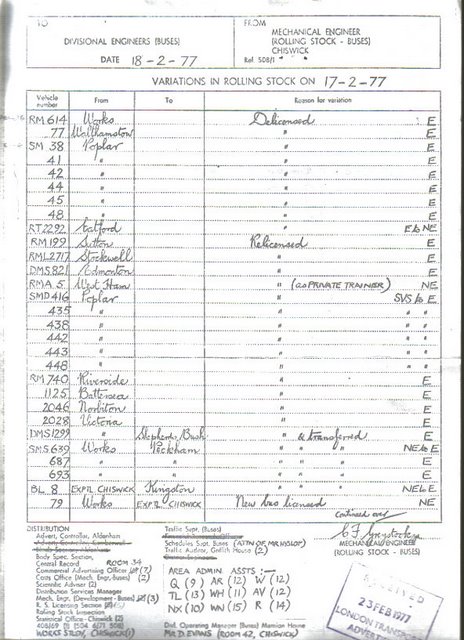 TO
DIVISIONAL ENGINEERS (BUSES)
DATE 18-2-77
FROM
MECHANICAL ENGINEER
(ROLLING STOCK - BUSES)
CHISWICK
Ref. 508/1
VARIATIONS IN ROLLING STOCK ON 17-2-77
Vehicle number From To Reason for variation
RM 614 Works Delicensed E
77 Walthamstow " E
SM 38 Poplar " E
41 " " E
42 " " E
44 " " E
45 " " E
48 " " E
RT2292 Catford " E to NE
RM 199 Sutton Relicensed E
RML2717 Stockwell " E
DMS 821 Edmonton " E
RMA 5 West Ham " (as PRIVATE TRAINER) NE
SMD 416 Poplar " SVS to E
435 " " " "
438 " " " "
442 " " " "
443 " " " "
448 " " " "
RM 740 Riverside " E
1125 Battersea " E
2046 Norbiton " E
2028 Victoria " E
DMS1299 " Shepherds Bush " & transferred E
SMS 639 Works Peckham " " " NE to E
687 " " " " " E
693 " " " " " E
BL 8 EXPTL CHISWICK Kingston " " " NEL E
79 Works EXPTL CHISWICK New bus licensed NE
continued over
MECHANICAL ENGINEER
(ROLLING STOCK - BUSES)
DISTRIBUTION
Advert, Controller, Aldenham
Body Spec. Section
Central Record ROOM 34
Commercial Advertising Officer (7)
Costs Officer (Mech. Engr.-Buses) (2)
Scientific Adviser (2)
Distribution Services Manager
Mech. Engr. (Development - Buses) (3)
R. S. Licensing Section
Rolling Stock Inspection
Statistical Office - Chiswick (2)
WORKS STUDY, CHISWICK (1)
Traffic Supt. (Buses)
Schedules Supt. Buses (ATTN OF MR HYSLOP)
Traffic Auditor, Griffith House (2)
AREA ADMIN ASSTS :-
Q (9) AR (12) W (12)
TL (13) WH (11) AV (12)
NX (10) WN (15) R (14)
Divl. Operating Manager (Buses) Mansion House
Mr D. EVANS (ROOM 42, CHISWICK)
RECEIVED
23 FEB 1977
LONDON TRANSPORT